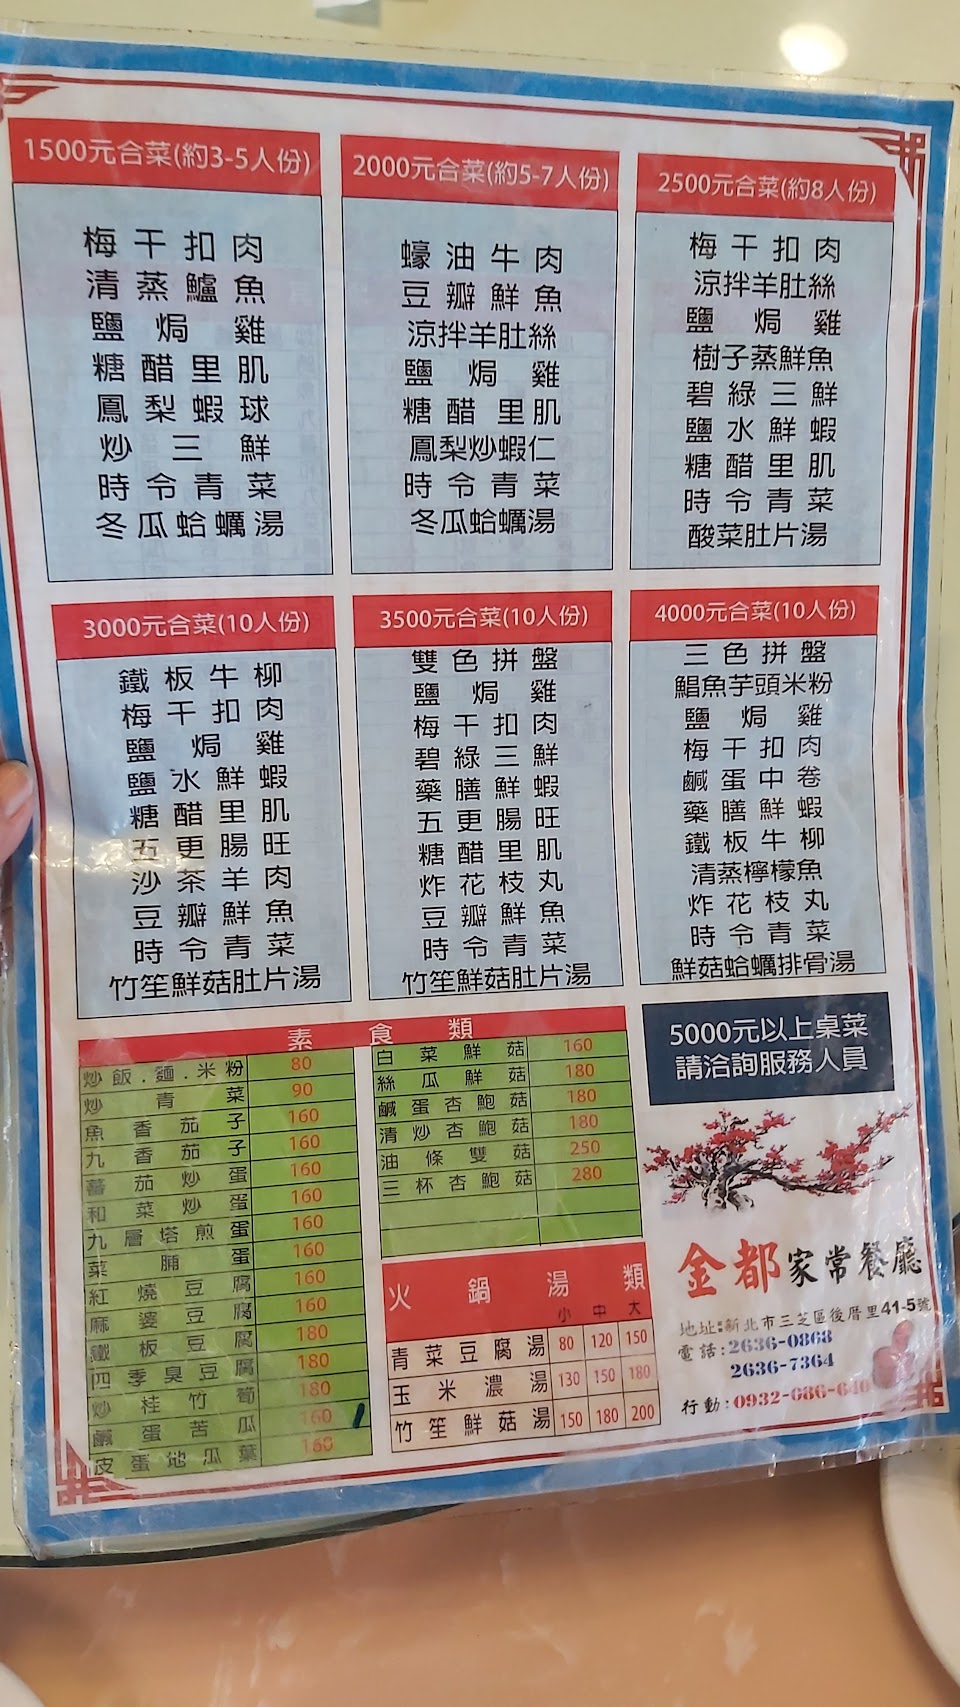 1500元合菜(約3-5人份)
梅干扣肉
清蒸鱸魚
鹽焗雞
糖醋里肌
鳳梨蝦球
炒三鮮
時令青菜
冬瓜蛤蠣湯
2000元合菜(約5-7人份)
蠔油牛肉
豆瓣鮮魚
涼拌羊肚絲
鹽焗雞
糖醋里肌
鳳梨炒蝦仁
時令青菜
冬瓜蛤蠣湯
2500元合菜(約8人份)
梅干扣肉
涼拌羊肚絲
鹽焗雞
樹子蒸鮮魚
碧綠三鮮
鹽水鮮蝦
糖醋里肌
時令青菜
酸菜肚片湯
3000元合菜(10人份)
鐵板牛柳
梅干扣肉
鹽焗雞
鹽水鮮蝦
糖醋里肌
五更腸旺
沙茶羊肉
豆瓣鮮魚
時令青菜
竹笙鮮菇肚片湯
3500元合菜(10人份)
雙色拼盤
鹽焗雞
梅干扣肉
碧綠三鮮
藥膳鮮蝦
五更腸旺
糖醋里肌
炸花枝丸
豆瓣鮮魚
時令青菜
竹笙鮮菇肚片湯
4000元合菜(10人份)
三色拼盤
鯧魚芋頭米粉
鹽焗雞
梅干扣肉
鹹蛋中卷
藥膳鮮蝦
鐵板牛柳
清蒸檸檬魚
炸花枝丸
時令青菜
鮮菇蛤蠣排骨湯
素食類
炒飯.麵.米粉 80
炒青菜 90
魚香茄子 160
九香茄子 160
蕃茄炒蛋 160
和菜炒蛋 160
九層塔煎蛋 160
菜脯蛋 160
紅燒豆腐 160
麻婆豆腐 160
鐵板豆腐 180
四季臭豆腐 180
炒桂竹筍 180
鹹蛋苦瓜 160
皮蛋地瓜葉 160
白菜鮮菇 160
絲瓜鮮菇 180
鹹蛋杏鮑菇 180
清炒杏鮑菇 180
油條雙菇 250
三杯杏鮑菇 280
火鍋湯類
小 中 大
青菜豆腐湯 80 120 150
玉米濃湯 130 150 180
竹笙鮮菇湯 150 180 200
5000元以上桌菜
請洽詢服務人員
金都家常餐廳
地址:新北市三芝區後厝里41-5號
電話:2636-0868
2636-7364
行動:0932-086-646